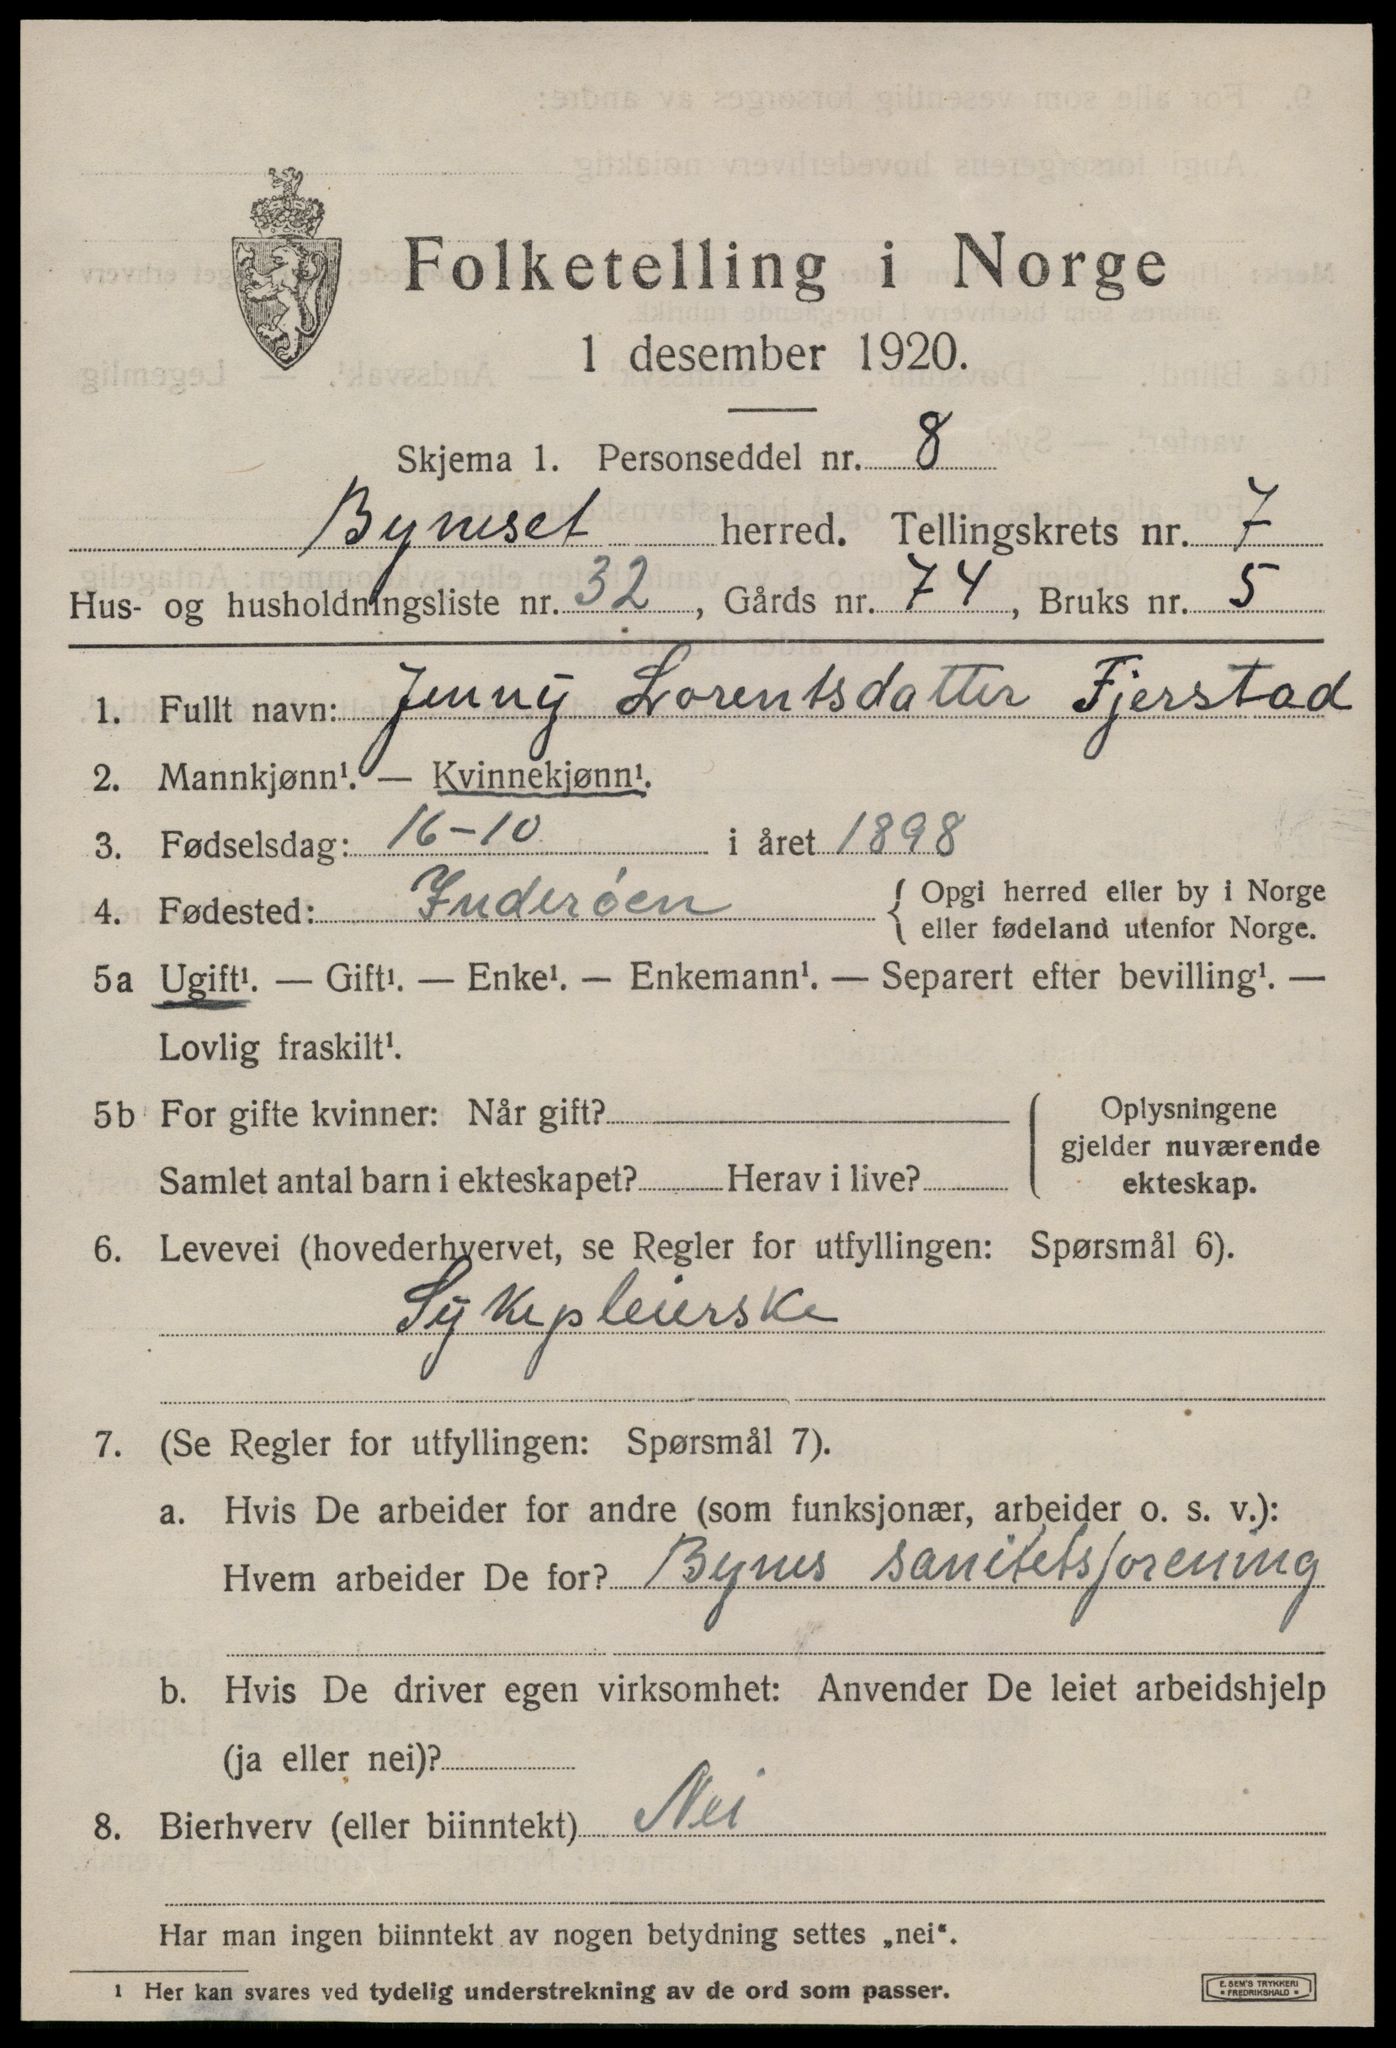 Folketelling i Norge
1 desember 1920.
Skjema 1. Personseddel nr. 8
Byneset herred. Tellingskrets nr. 7
Hus- og husholdningsliste nr. 32, Gårds nr. 74, Bruks nr. 5
1. Fullt navn: Jenny Lorentsdatter Fjerstad
2. Mannkjønn¹. — Kvinnekjønn¹.
3. Fødselsdag: 16-10 i året 1898
4. Fødested: Inderöen { Opgi herred eller by i Norge
eller fødeland utenfor Norge.
5a Ugift¹. — Gift¹. — Enke¹. — Enkemann¹. — Separert efter bevilling¹. —
Lovlig fraskilt¹.
5b For gifte kvinner: Når gift?
Samlet antal barn i ekteskapet? Herav i live?
{ Oplysningene
gjelder nuværende
ekteskap.
6. Levevei (hovederhvervet, se Regler for utfyllingen: Spørsmål 6).
Sykepleierske
7. (Se Regler for utfyllingen: Spørsmål 7).
a. Hvis De arbeider for andre (som funksjonær, arbeider o. s. v.):
Hvem arbeider De for? Bynes sanitetsforening
b. Hvis De driver egen virksomhet: Anvender De leiet arbeidshjelp
(ja eller nei)?
8. Bierhverv (eller biinntekt) Nei
Har man ingen biinntekt av nogen betydning settes „nei“.
1 Her kan svares ved tydelig understrekning av de ord som passer.
E. SEM'S TRYKKERI
• FREDRIKSHALD •